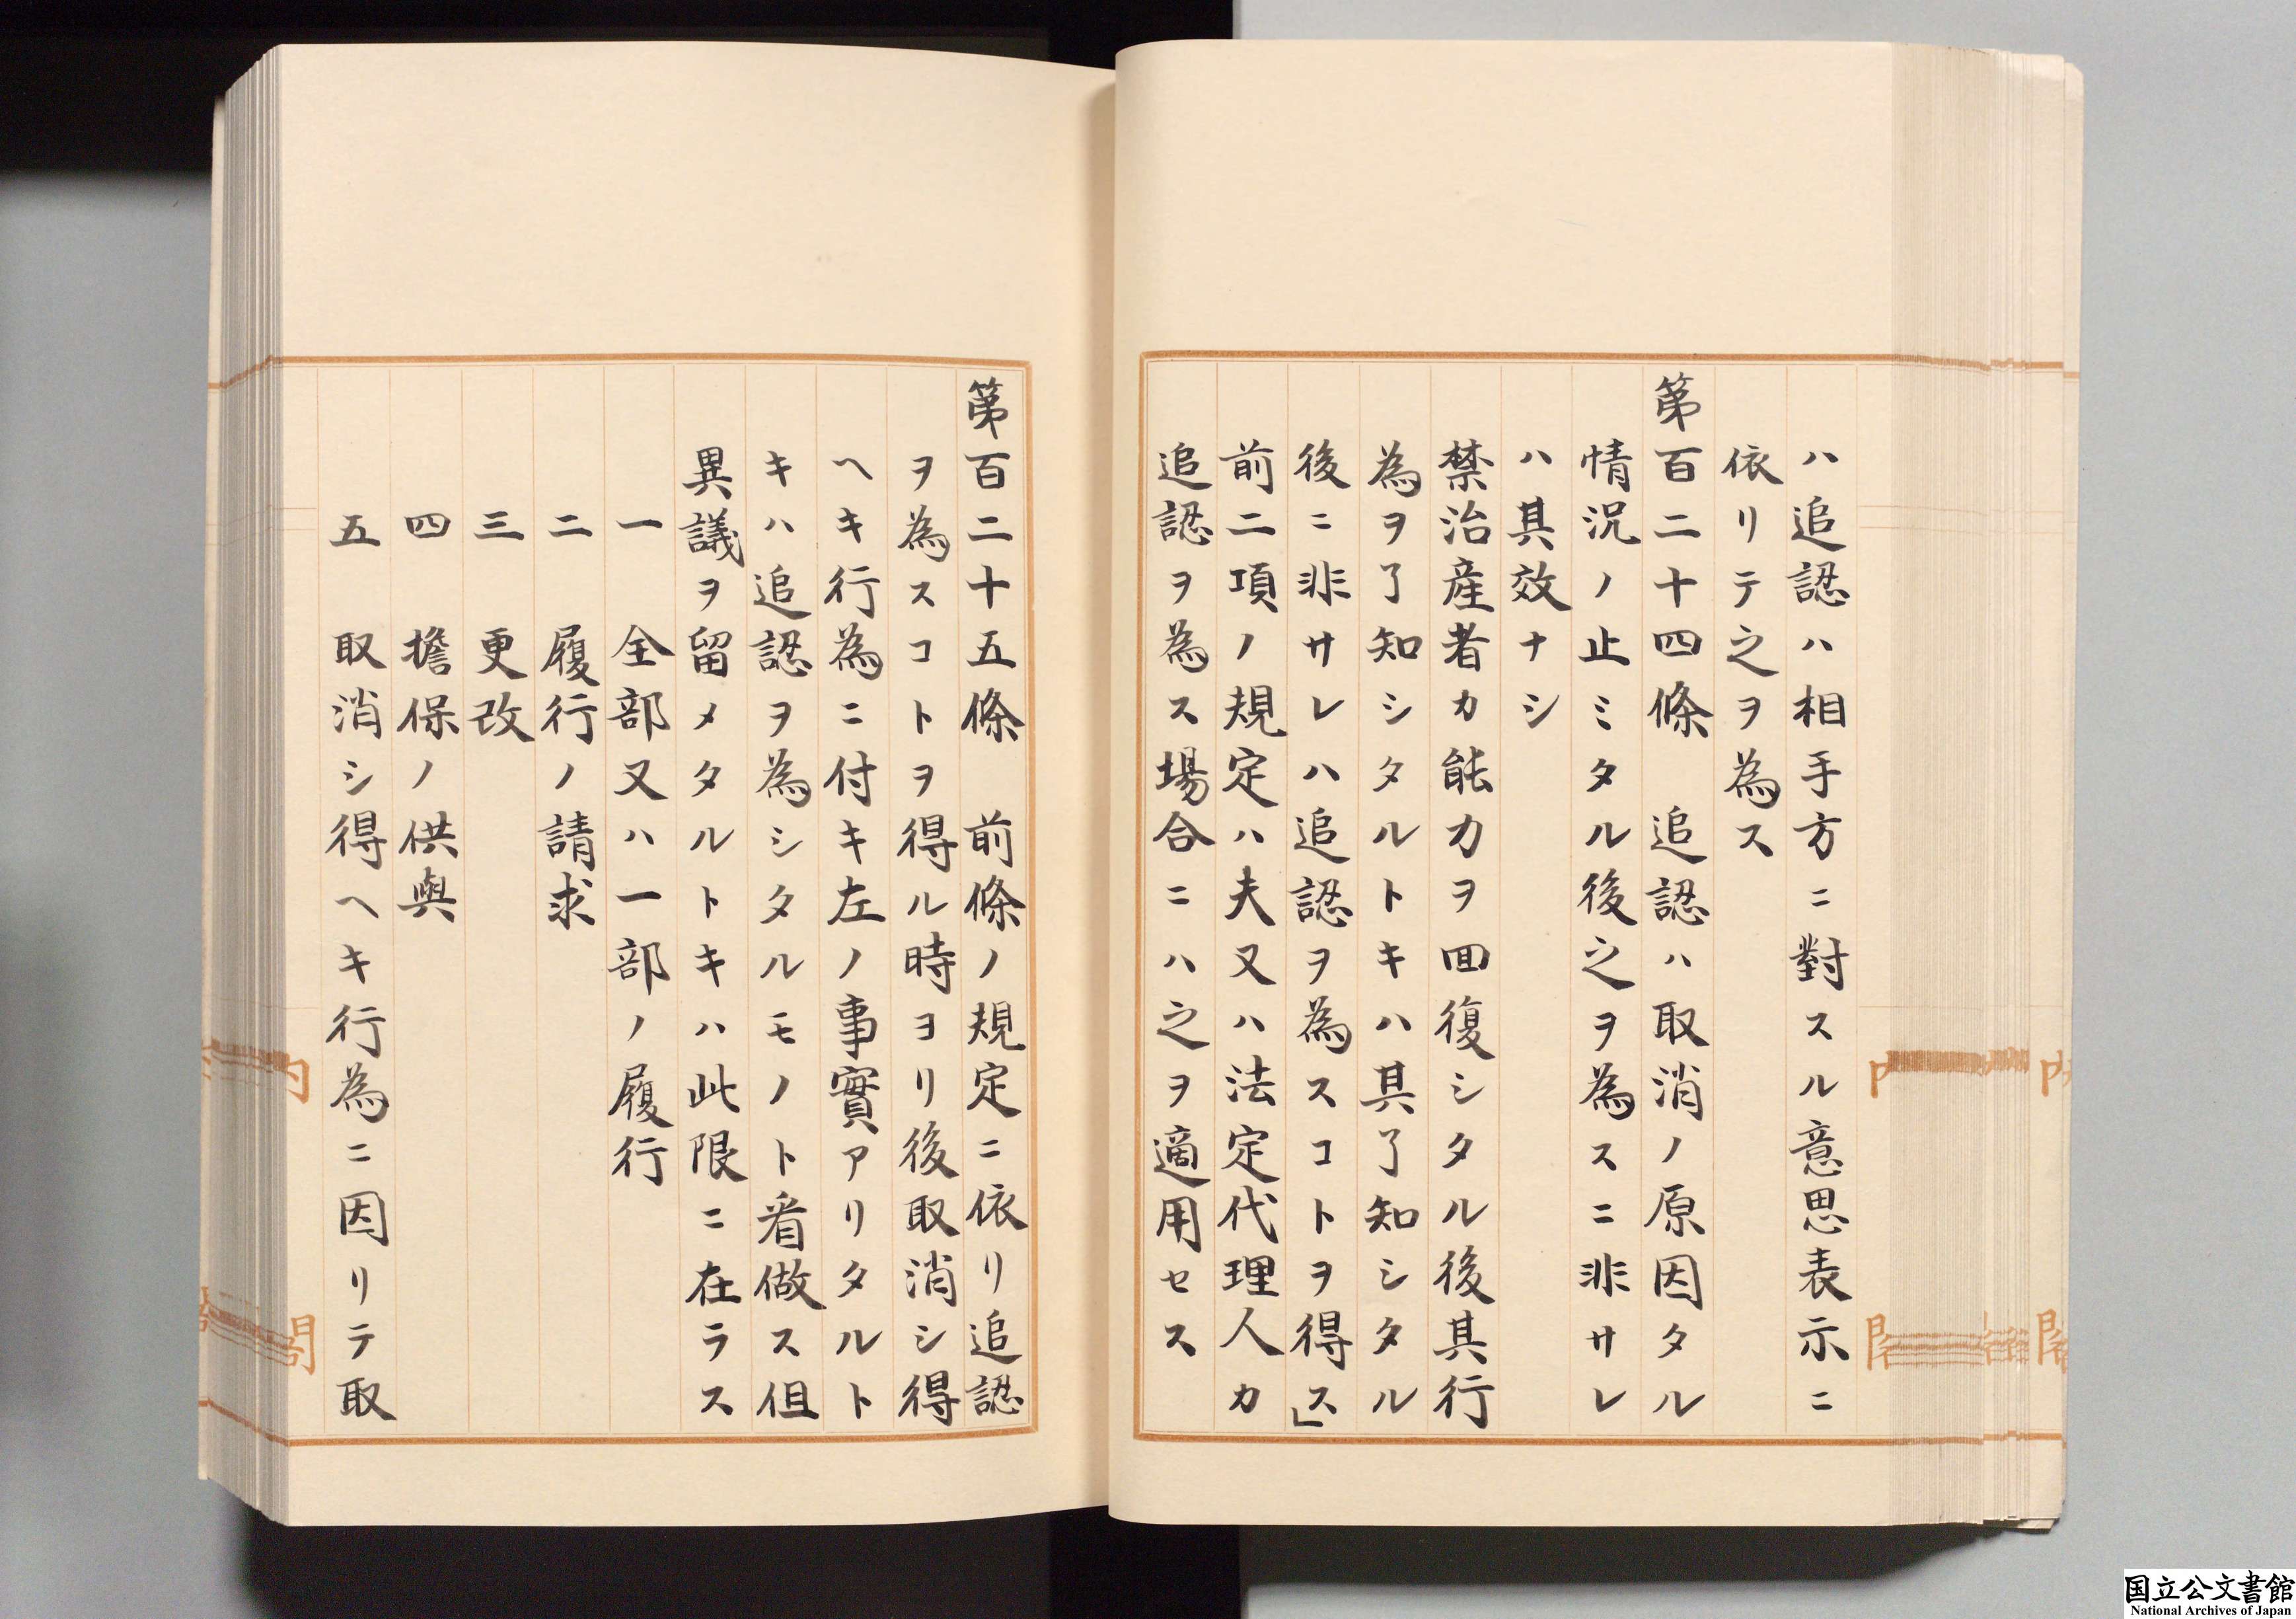 ハ追認ハ相手方ニ對スル意思表示ニ
依リテ之ヲ為ス
第百二十四條　追認ハ取消ノ原因タル
情況ノ止ミタル後之ヲ為スニ非サレ
ハ其效ナシ
禁治産者カ能力ヲ回復シタル後其行
為ヲ了知シタルトキハ其了知シタル
後ニ非サレハ追認ヲ為スコトヲ得ス」
前二項ノ規定ハ夫又ハ法定代理人カ
追認ヲ為ス場合ニハ之ヲ適用セス
第百二十五條　前條ノ規定ニ依リ追認
ヲ為スコトヲ得ル時ヨリ後取消シ得
ヘキ行為ニ付キ左ノ事實アリタルト
キハ追認ヲ為シタルモノト看做ス但
異議ヲ留メタルトキハ此限ニ在ラス
一　全部又ハ一部ノ履行
二　履行ノ請求
三　更改
四　擔保ノ供與
五　取消シ得ヘキ行為ニ因リテ取
内
閣
国立公文書館
National Archives of Japan